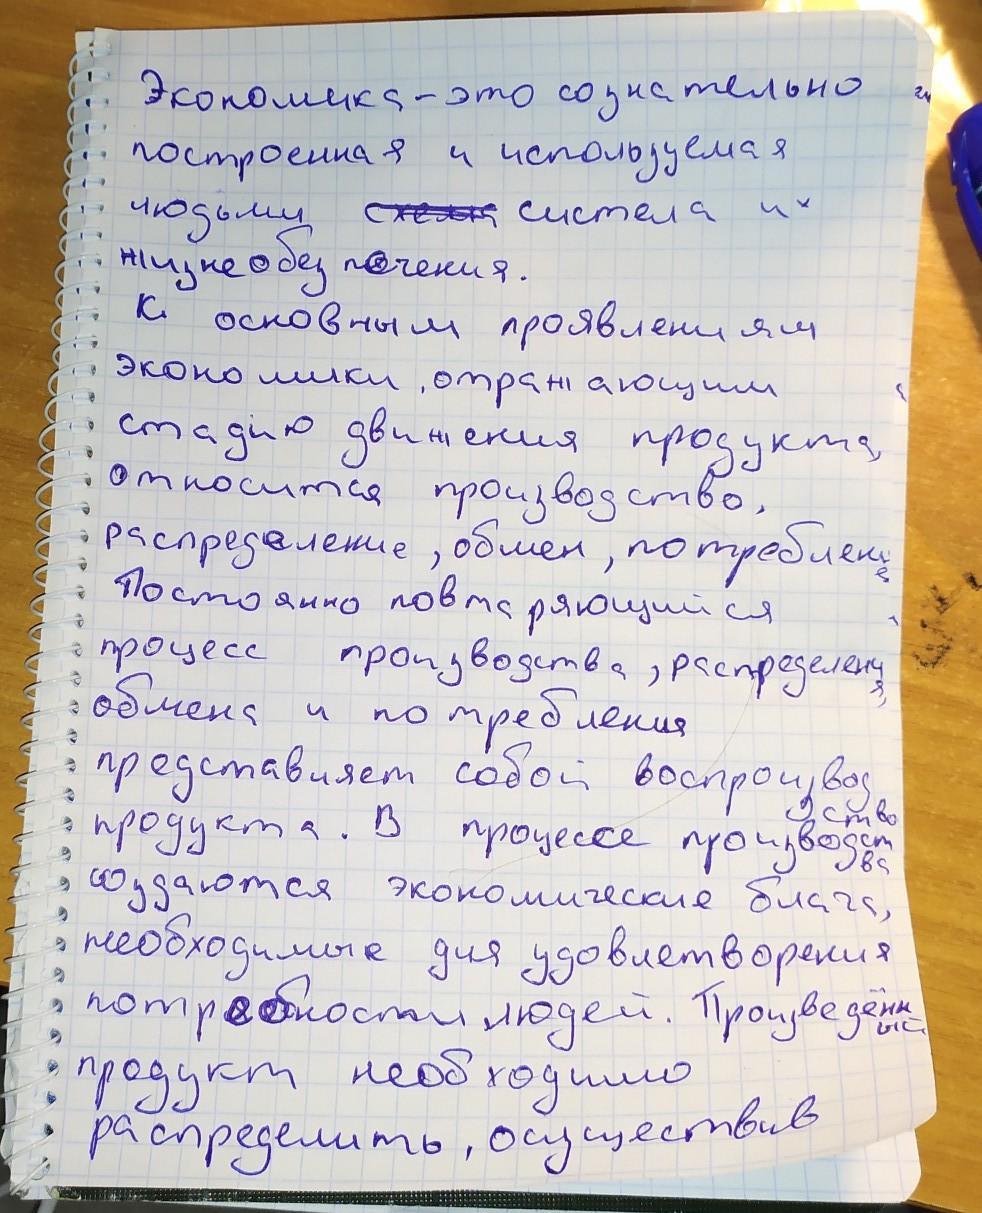 Экономика - это сознательно
построенная и используемая
людьми система их
жизнеобезпечения.
К основным проявлениям
экономики, отражающим
стадию движения продукта,
относится производство,
распределение, обмен, потребление
Постоянно повтаряющийся
процесс производства, распределения,
обмена и потребления
представляет собой воспроизводство
продукта. В процессе производства
создаются экономические блага,
необходимые для удовлетворения
потребности людей. Произведённый
продукт необходимо
распределить, осуществив